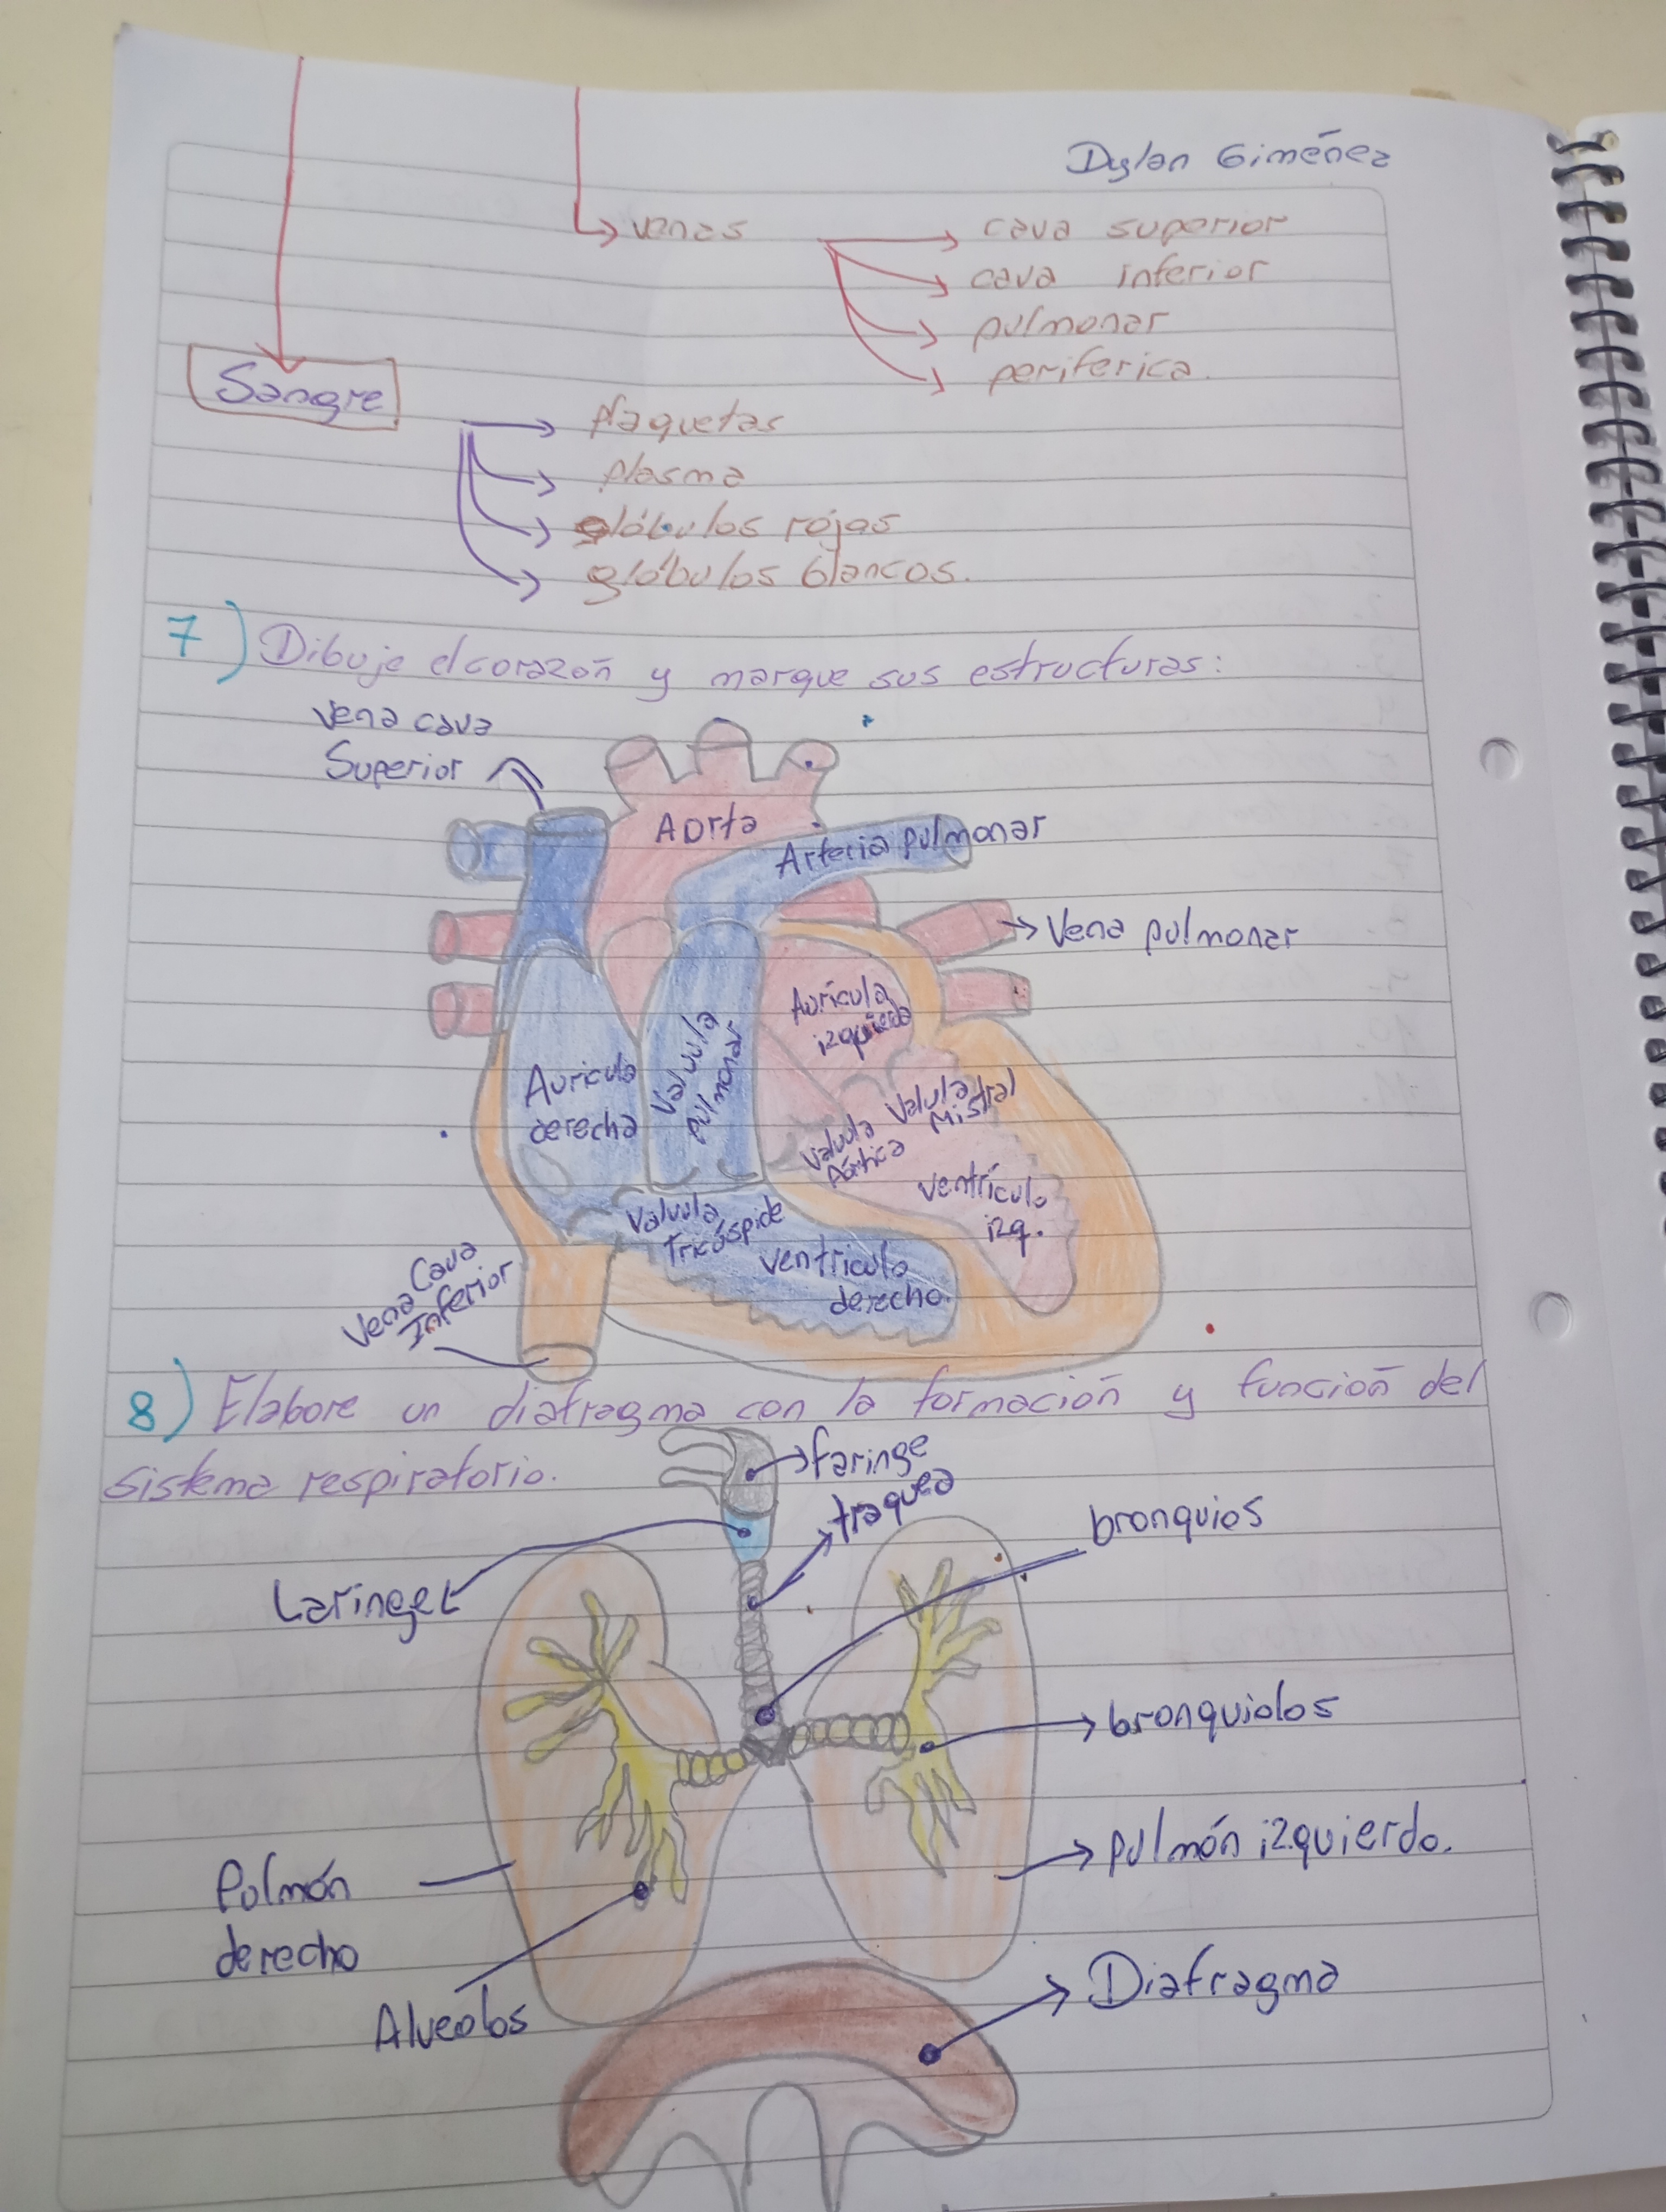 Dylan Giménez
venas
cava superior
cava inferior
pulmonar
periferica.
Sangre
plaquetas
plasma
glóbulos rójas
glóbulos blancos.
7) Dibuje el corazón y marque sus estructuras:
Vena cava
Superior
Aorta
Arteria pulmonar
Vena pulmonar
Aurícula
izquierda
Auricula
derecha
Valvula
pulmonar
Valvula
Mistral
Valvula
Aórtica
Ventrículo
izq.
Valvula
Tricúspide
Ventriculo
derecho.
Vena Cava
Inferior
8) Elabore un diafragma con la formación y función del
sistema respiratorio.
faringe
traquea
bronquios
Laringe
bronquiolos
Pulmón izquierdo.
Pulmón
derecho
Alveolos
Diafragma